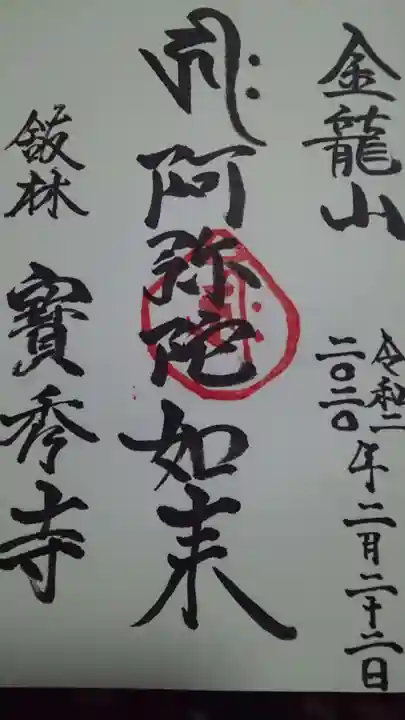 金龍山
令和二
二〇二〇年二月二十二日
ꣽ阿弥陀如来
飯林 寳秀寺